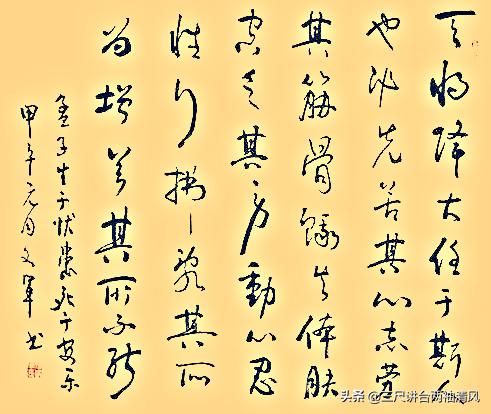 天将降大任于斯人
也必先苦其心志劳
其筋骨饿其体肤
空乏其身動心忍
性行拂乱其所
为增益其所不能
孟子生于忧患死于安乐
甲午元月文军书
头条 @三尺讲台两袖清风